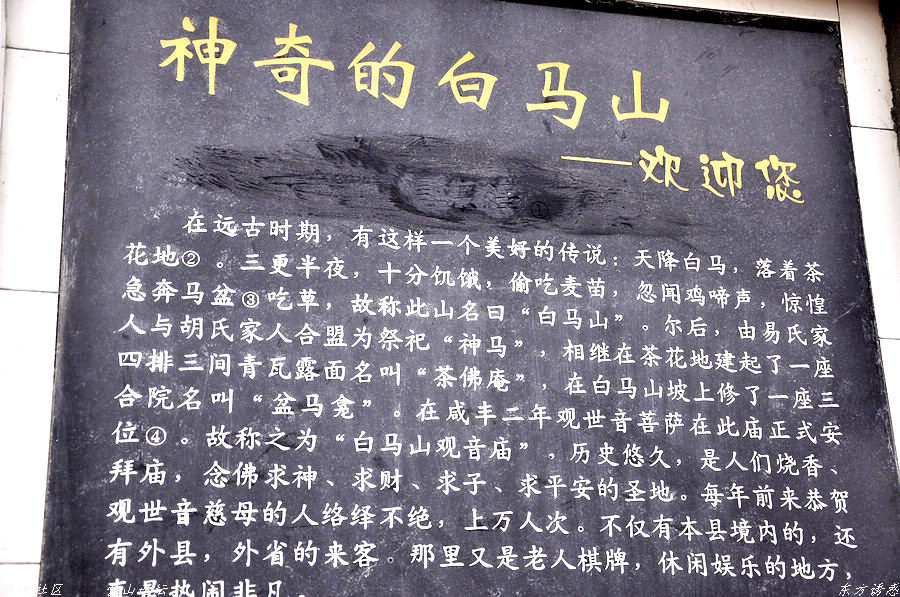 神奇的白马山
——欢迎您
①
在远古时期，有这样一个美好的传说：天降白马，落着茶
花地②。三更半夜，十分饥饿，偷吃麦苗，忽闻鸡啼声，惊惶
急奔马盆③吃草，故称此山名曰“白马山”。尔后，由易氏家
人与胡氏家人合盟为祭祀“神马”，相继在茶花地建起了一座
四排三间青瓦露面名叫“茶佛庵”，在白马山坡上修了一座三
合院名叫“盆马龛”。在咸丰二年观世音菩萨在此庙正式安
位④。故称之为“白马山观音庙”。历史悠久，是人们烧香、
拜庙，念佛求神、求财、求子、求平安的圣地。每年前来恭贺
观世音慈母的人络绎不绝，上万人次。不仅有本县境内的，还
有外县，外省的来客。那里又是老人棋牌，休闲娱乐的地方，
真是热闹非凡。
东方诱惑